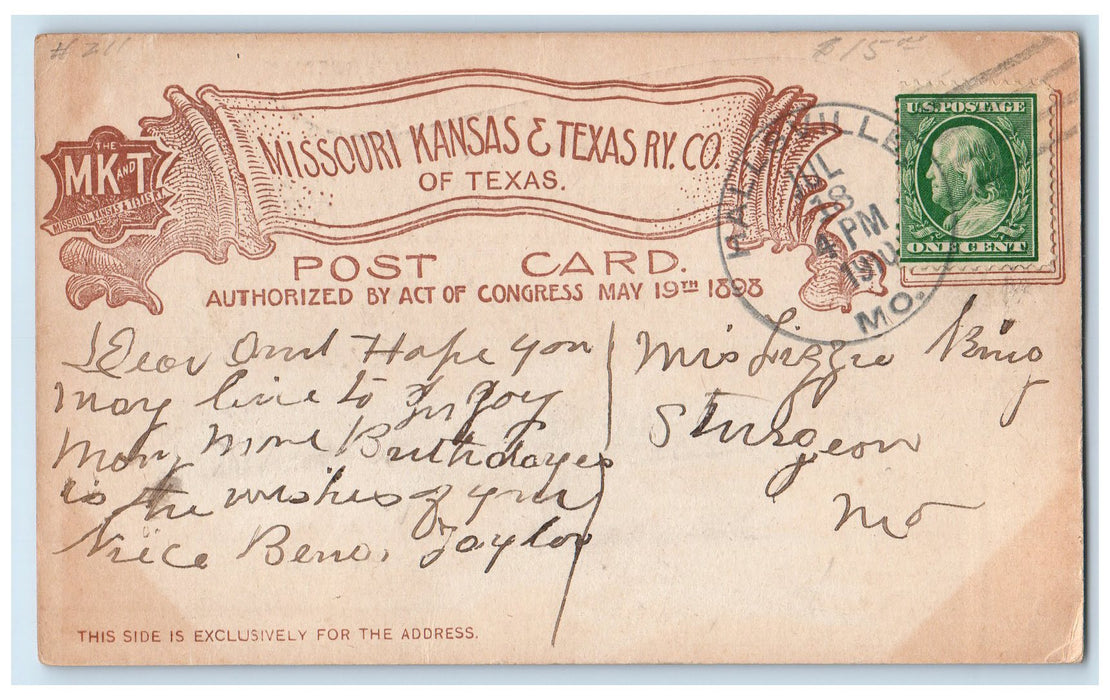 # 211
$15
MISSOURI KANSAS & TEXAS RY. CO.
OF TEXAS.
THE
MK AND T
MISSOURI, KANSAS & TEXAS RY.
POST CARD.
AUTHORIZED BY ACT OF CONGRESS MAY 19TH 1898
HALLSVILLE
JUL
18
4 PM
MO.
U.S. POSTAGE
ONE CENT
Dear Ant Hope you
may live to In Joy
Mony More Birthdayes
is the wishes of your
Niece Bena Taylor
Mis Lizzie King
Sturgeon
Mo
THIS SIDE IS EXCLUSIVELY FOR THE ADDRESS.